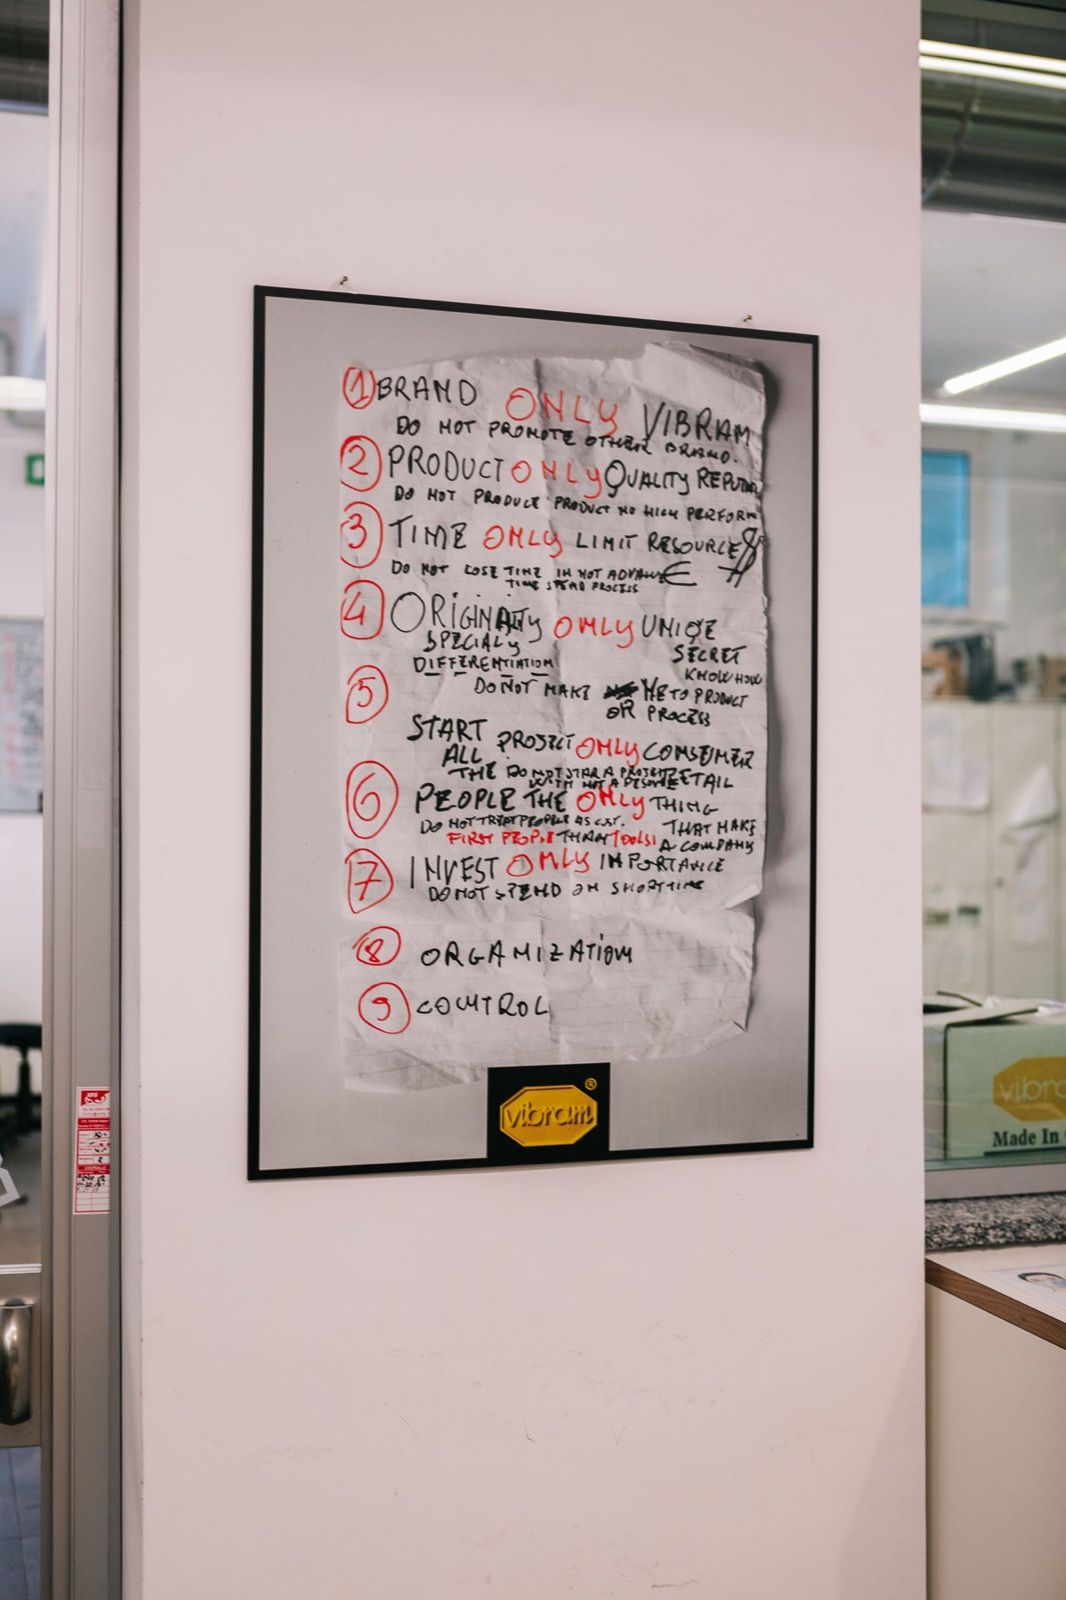 1 BRAND ONLY VIBRAM
DO NOT PROMOTE OTHER BRAND.
2 PRODUCT ONLY QUALITY REPUTA
DO NOT PRODUCE PRODUCT NO HIGH PERFORM
3 TIME ONLY LIMIT RESOURCE $ €
DO NOT LOSE TIME IN NOT ADVANCE
TIME SPEND PROCESS
4 ORIGINALITY ONLY UNIQE
SPECIALY SECRET
DIFFERENTIATION KNOW HOW
5 DO NOT MAKE ME TO PRODUCT
OR PROCESS
START PROJECT ONLY CONSUMER
ALL
THE DO NOT START A PROJECT RETAIL
WITH NOT A
6 PEOPLE THE ONLY THING
DO NOT TREAT PEOPLE AS COST. THAT MAKE
FIRST PEOPLE THAN TOOLS! A COMPANY
7 INVEST ONLY IMPORTANCE
DO NOT SPEND ON SHORT TIME
8 ORGANIZATION
9 CONTROL
vibram ®
vibra
Made In